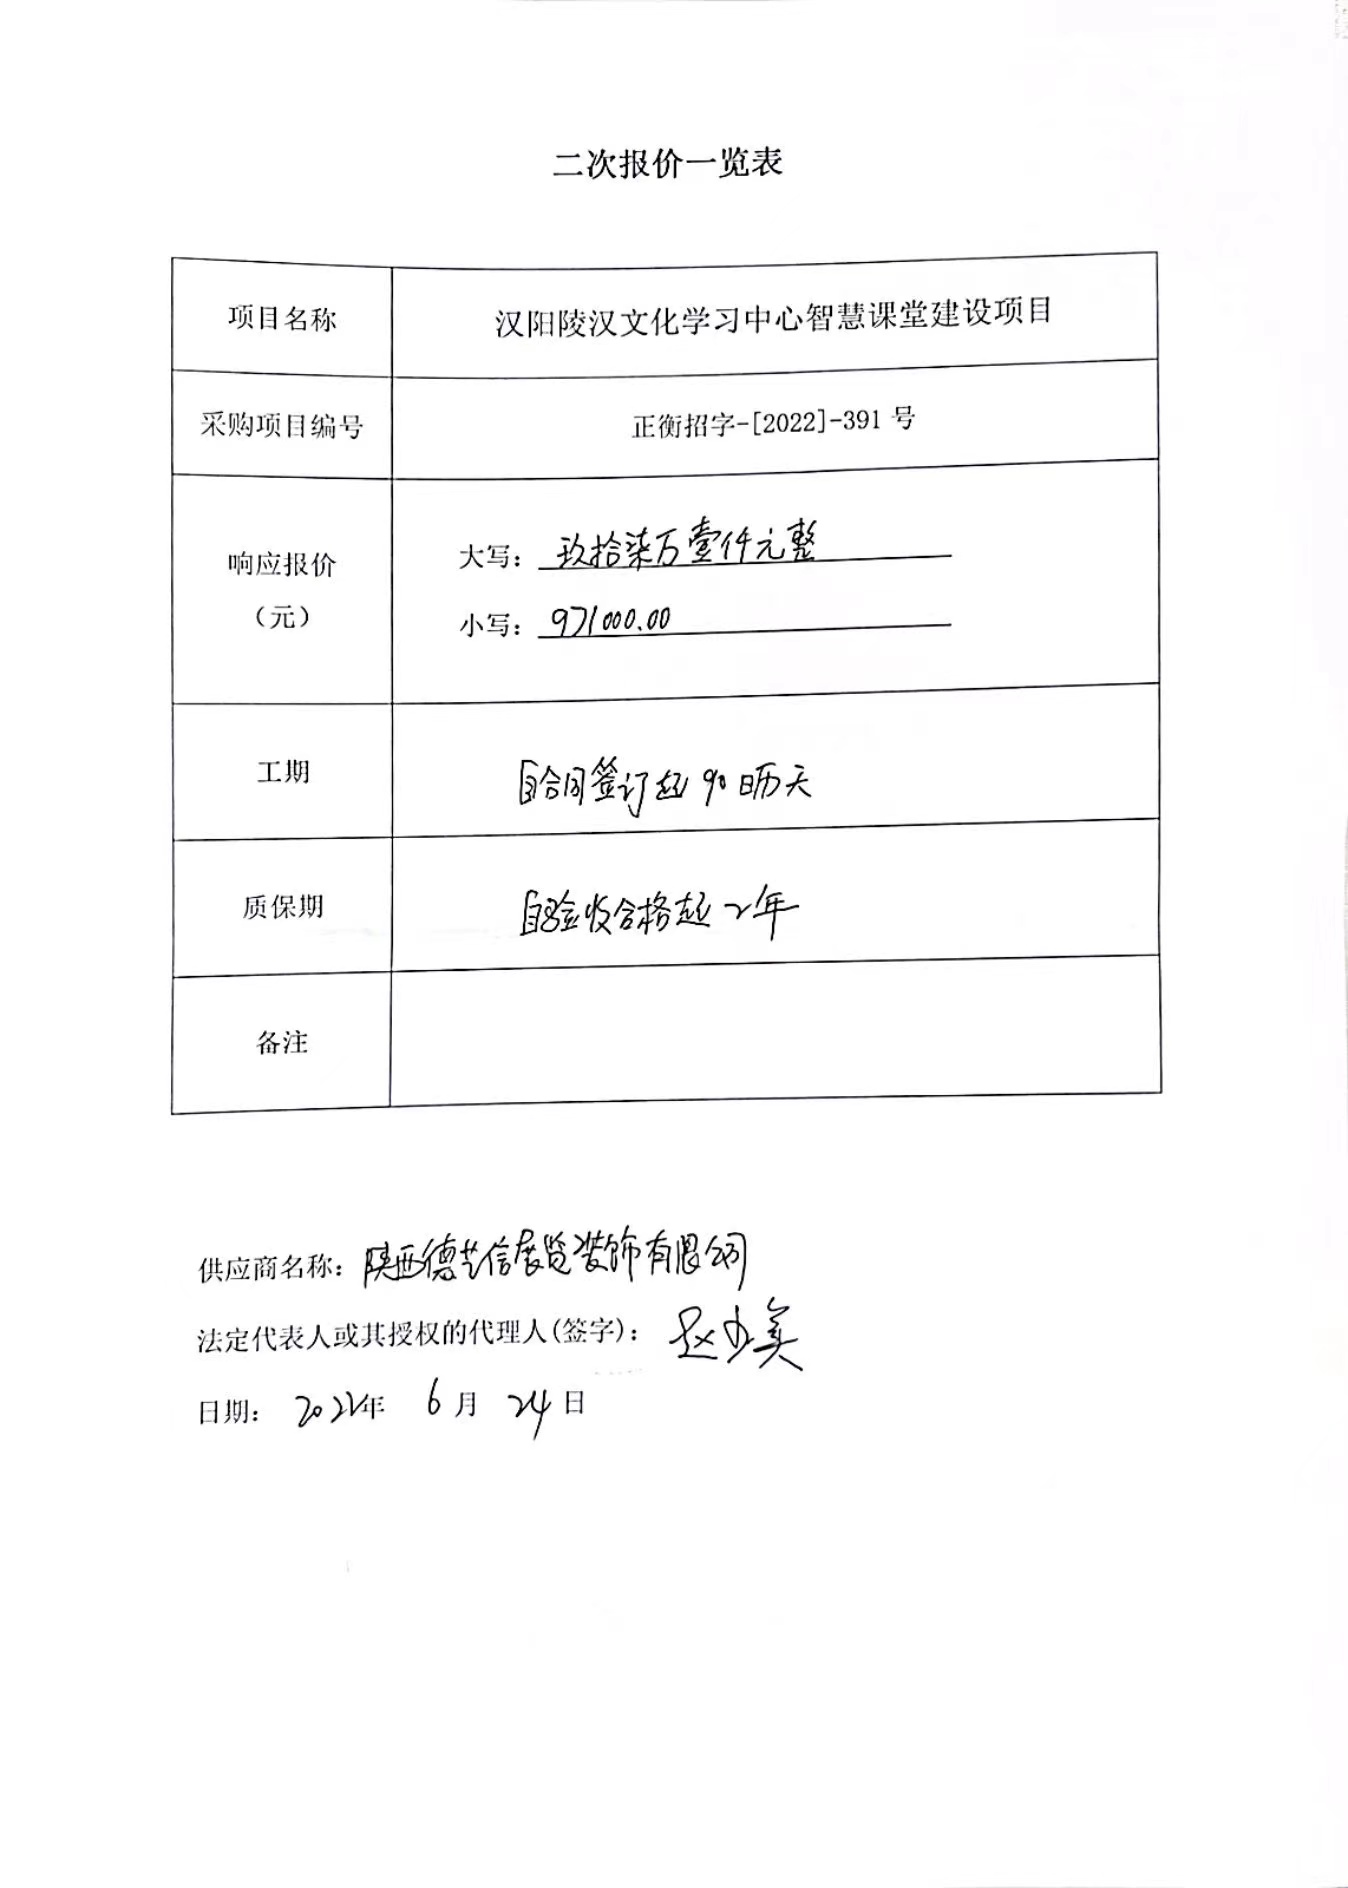 二次报价一览表
项目名称 汉阳陵汉文化学习中心智慧课堂建设项目
采购项目编号 正衡招字-[2022]-391 号
响应报价
（元）
大写： 玖拾柒万壹仟元整
小写： 971000.00
工期 自合同签订起 90 日历天
质保期 自验收合格起 2年
备注
供应商名称： 陕西德艺信展览装饰有限公司
法定代表人或其授权的代理人(签字)： 赵
日期： 2022年 6 月 24 日